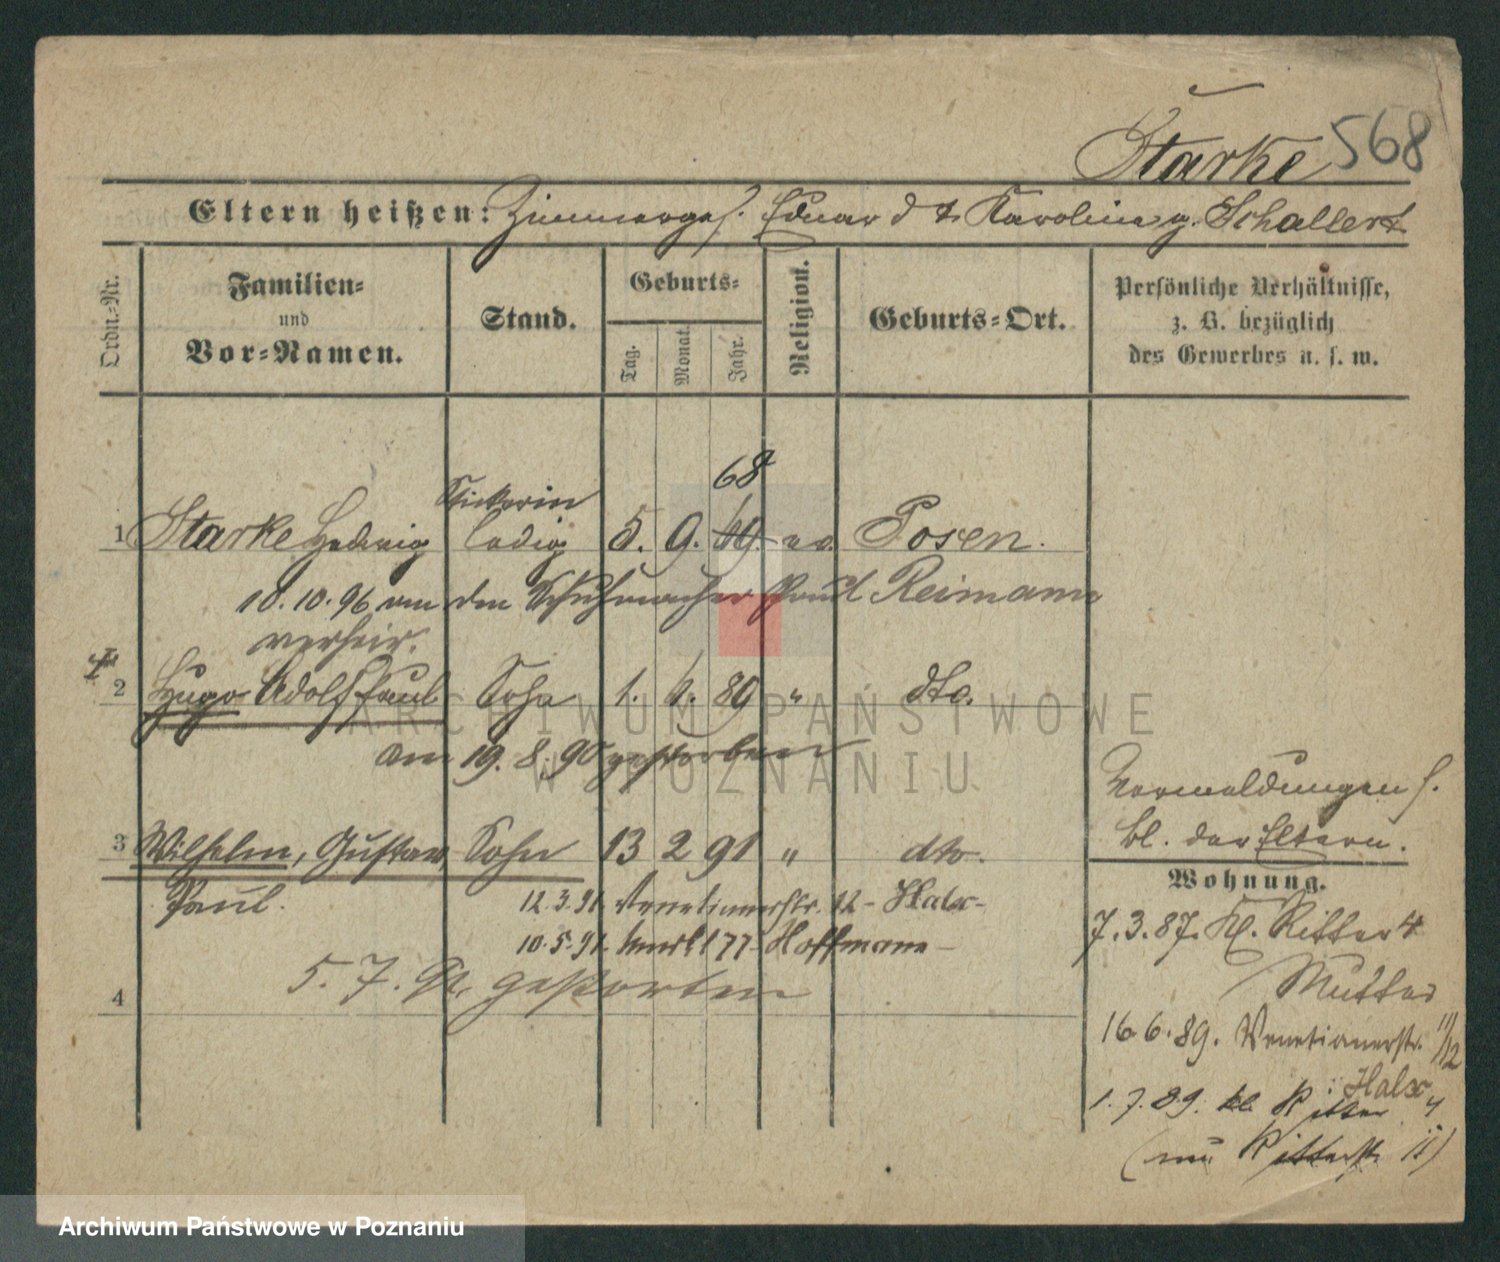 Starke 568
Eltern heißen: Zimmerges. Eduard & Karoline g. Schallert
Ordn.-Nr.
Familien-
und
Vor-Namen.
Stand.
Geburts-
Tag.
Monat.
Jahr.
Religion.
Geburts-Ort.
Persönliche Verhältnisse,
z. B. bezüglich
des Gewerbes u. s. w.
68
Stickerin
1 Starke Hedwig ledig 5. 9. 69. ev. Posen.
10.10.96 an den Schuhmacher Paul Reimann
verheir.
2 Hugo Adolf Paul Sohn 1. 6. 89 " dto.
am 19.8.90 gestorben
Vermeldungen s.
bl. der Eltern.
3 Wilhelm, Gustav Sohn 13 2 91 " dto.
Paul.
12.3.91. Venetianerstr. 12 - Halx-
10.5.91. 177 - Hoffmann -
5.7.91. gestorben
4
Wohnung.
7.3.87. Kl. Ritter 4
Mutter
16.6.89. Venetianerstr. 11/12
Halx
1.7.89. kl. Ritter 4
( Ritterstr. 11)
ARCHIWUM PAŃSTWOWE
W POZNANIU
Archiwum Państwowe w Poznaniu